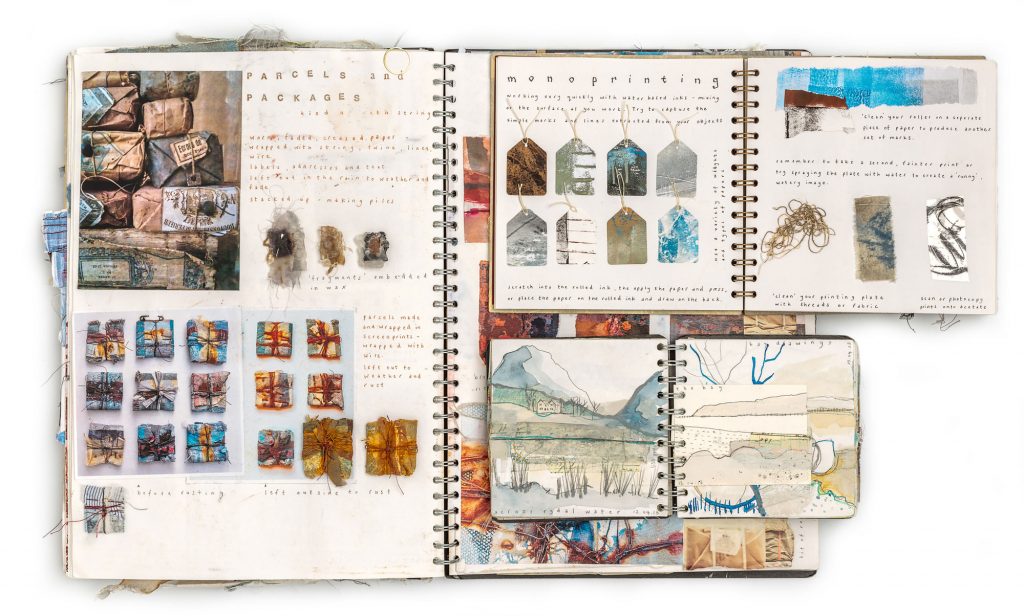 PARCELS and
PACKAGES
string
worn, faded, creased paper
wrapped with string, twine, linen,
wire
labels, addresses and text
left out in the rain to weather and
fade
stacked up - making piles
'fragments' embedded
in wax
parcels made
and wrapped in
screenprints -
wrapped with
wire.
left out to
weather and
rust
before rusting
left outside to rust
mono printing
working very quickly with water based inks - mixing
on the surface as you work. Try to capture the
simple marks and lines extracted from your objects
use a variety of papers
scratch into the rolled ink, the apply the paper and press,
or place the paper on the rolled ink and draw on the back.
'clean' your roller on a seperate
piece of paper to produce another
set of marks.
remember to take a second, fainter print or
try spraying the plate with water to create a 'runny',
watery image.
'clean' your printing plate
with threads or fabric
scan or photocopy
prints onto acetate
across rydal water
drawings
the bay